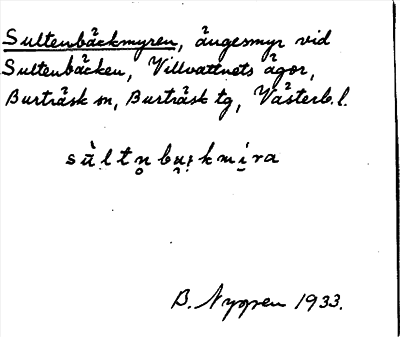 Sultenbäckmyren, ängesmyr vid
Sultenbäcken, Villvattnets ägor,
Burträsk sn, Burträsk tg, Västerb. l.
B. Nygren 1933.